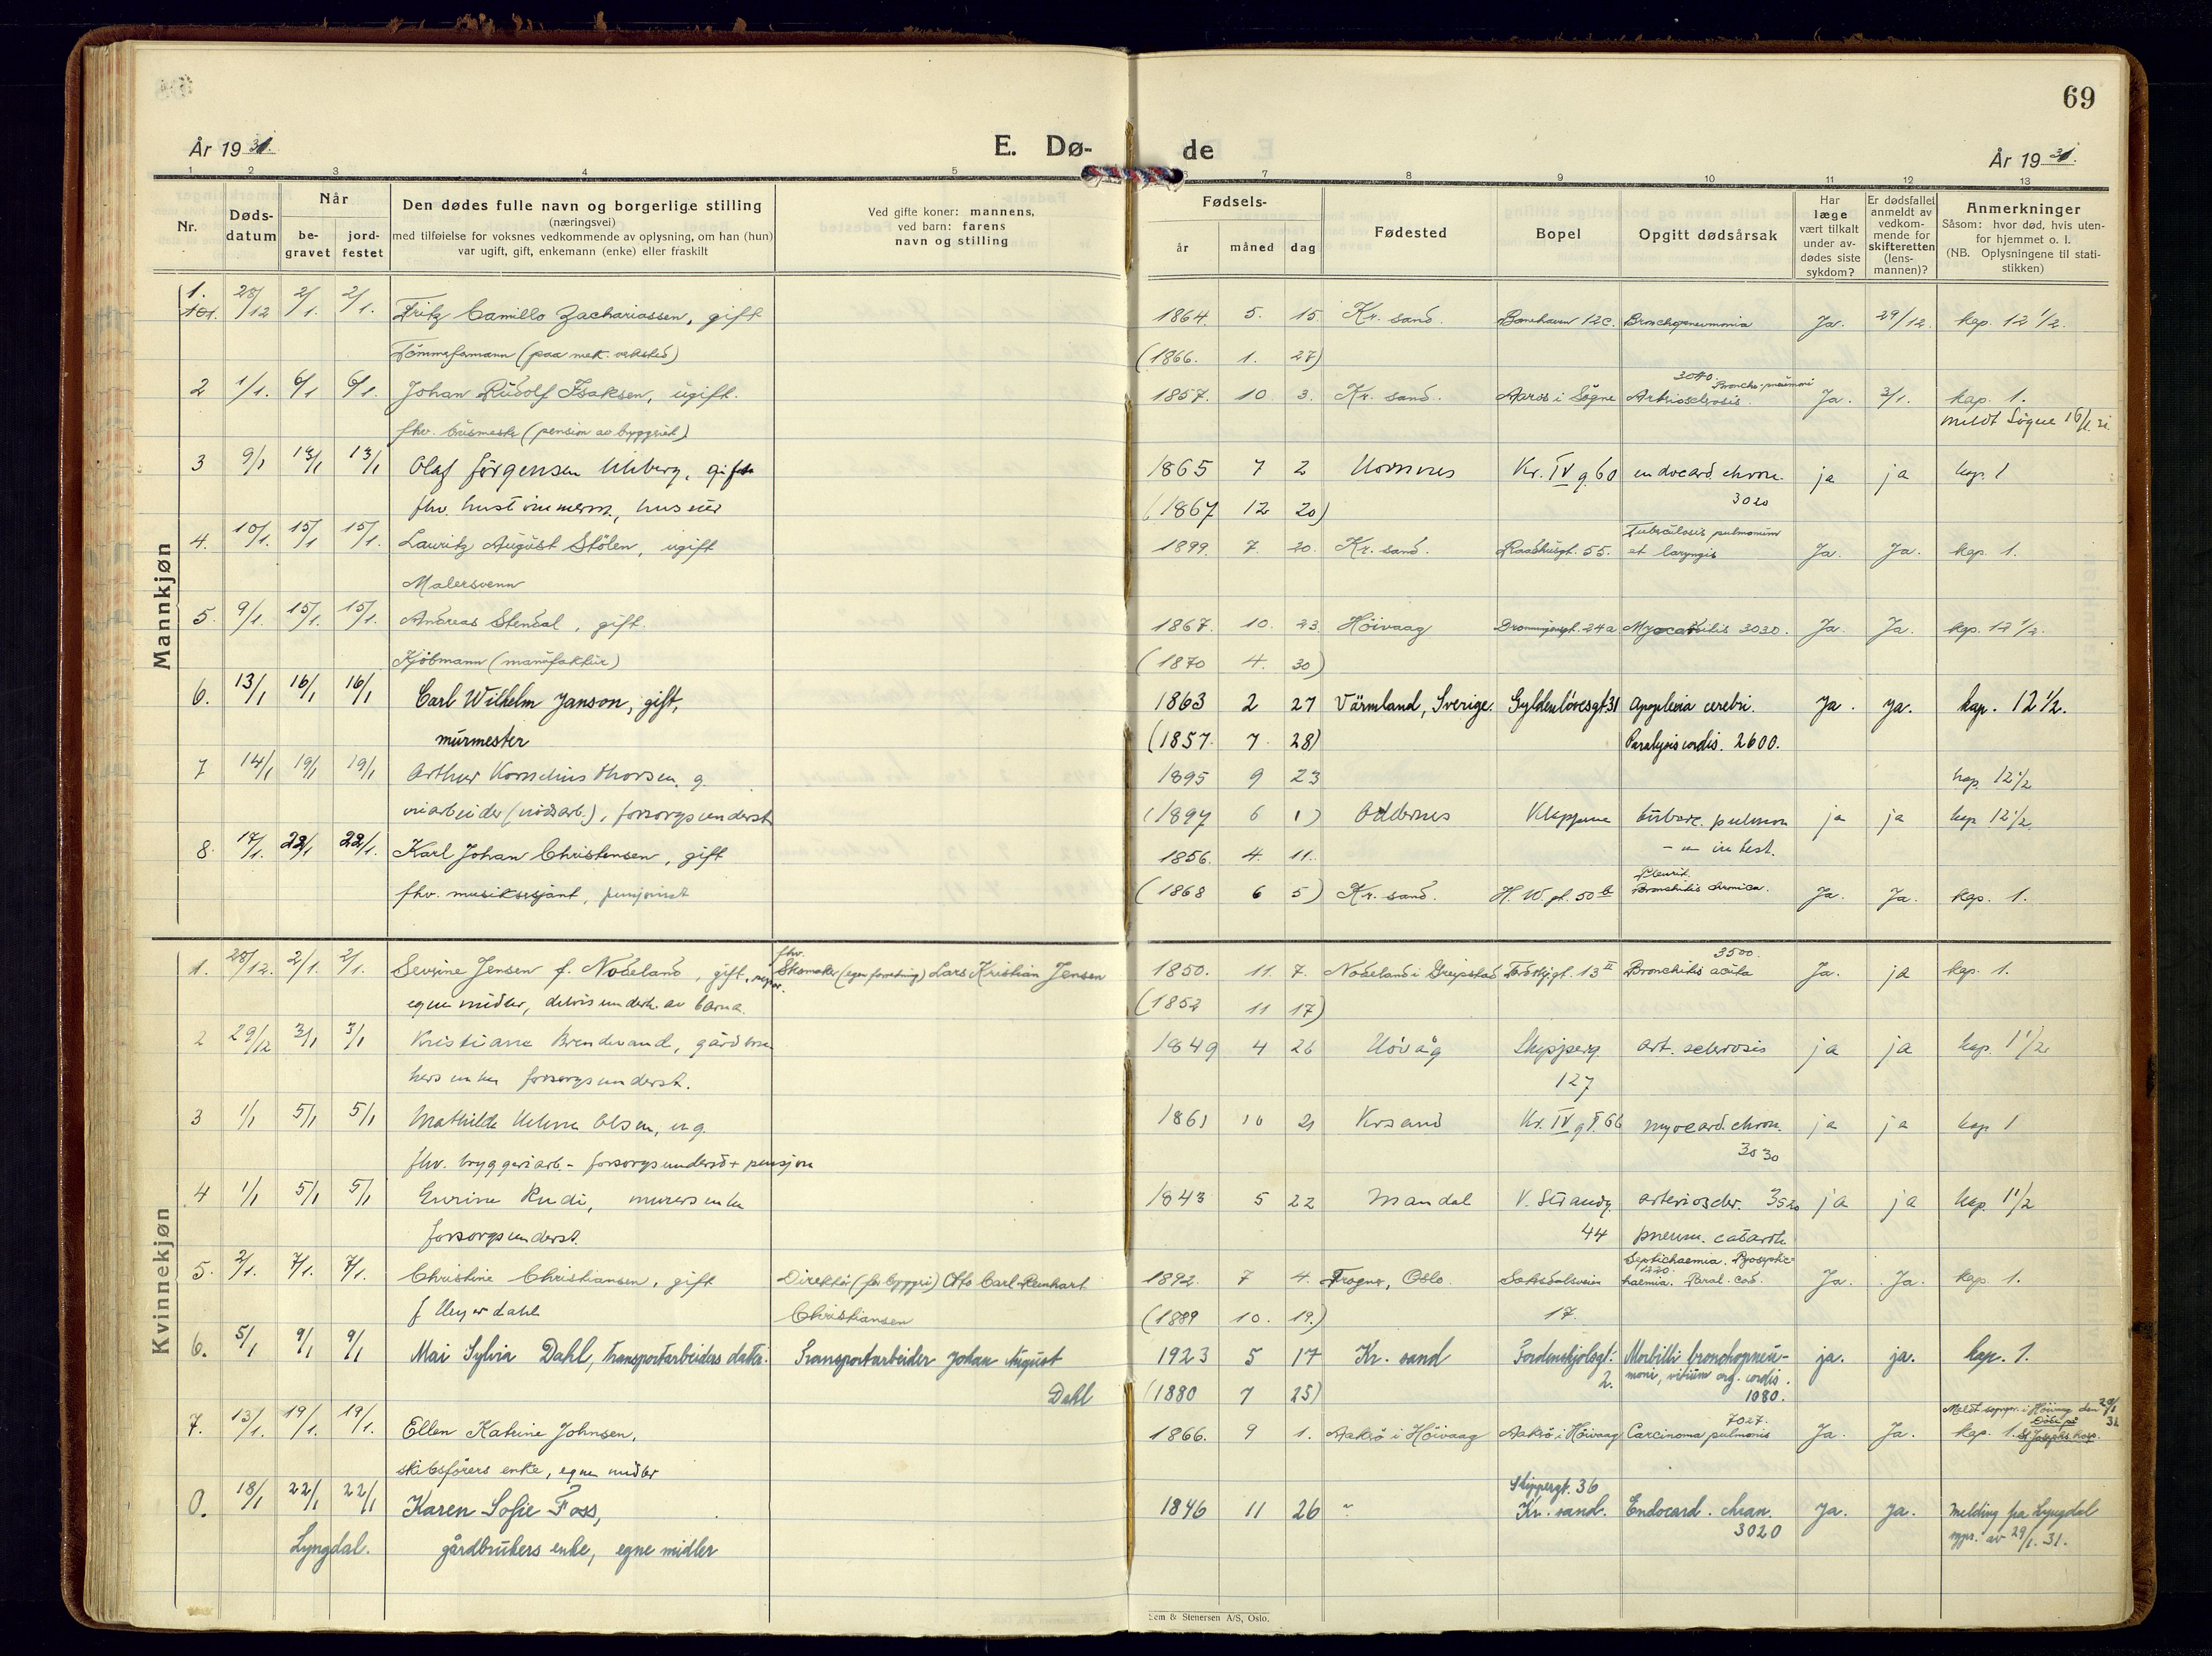 69
År 19 31.
E. Dø-
de
År 19 31.
1 2 3 4 5 7 8 9 10 11 12 13
Nr.
Døds-
datum
Når
be-
gravet
jord-
festet
Den dødes fulle navn og borgerlige stilling
(næringsvei)
med tilføielse for voksnes vedkommende av oplysning, om han (hun)
var ugift, gift, enkemann (enke) eller fraskilt
Ved gifte koner: mannens,
ved barn: farens
navn og stilling
Fødsels-
år måned dag
Fødested
Bopel
Opgitt dødsårsak
Har
læge
vært tilkalt
under av-
dødes siste
sykdom?
Er dødsfallet
anmeldt av
vedkom-
mende for
skifteretten
(lens-
mannen)?
Anmerkninger
Såsom: hvor død, hvis uten-
for hjemmet o. l.
(NB. Oplysningene til stati-
stikken)
Mannkjøn
1. 28/12 2/1. 2/1. Fritz Camillo Zachariassen, gift 1864. 5. 15 Kr. sand. 12c. Bronchopneumonia Ja. 29/12. kap. 12 1/2.
(paa mek. verksted) (1866. 1. 27)
2 1/1. 6/1 6/1. Johan Rudolf Isaksen, ugift. 1857. 10. 3. Kr. sand. Aaros i Søgne Arteriosclerosis. Broncho-pneumoni Ja. 3/1. kap. 1.
fhv. (pension av bryggeriet) meldt Søgne 16/1. 31.
3 9/1 13/1 13/1 Olaf Jörgensen, gift 1865 7 2 Hornnes Kr. IV g. 60 endocard. chron. ja ja kap. 1
fhv. hustömmerm., huseier (1867 12 20) 3020
4. 10/1. 15/1 15/1. Lauritz August Stölen, ugift 1899. 7. 20. Kr. sand. Raadhusgt. 55. Tuberculosis pulmonum et laryngis Ja. Ja. kap. 1.
Malersvenn
5. 9/1. 15/1. 15/1. Andreas Stendal, gift. 1867. 10. 23. Höivaag Dronningensgt. 24a Myocarditis 3030. Ja. Ja. kap. 12 1/2.
Kjöbmann (manufaktur) (1870 4. 30)
6. 13/1 16/1 16/1 Carl Wilhelm Janson, gift, 1863 2 27 Värmland, Sverige. Gyldenlövesgt. 31 Apoplexia cerebri. Ja. ja. kap. 12 1/2.
murmester (1857. 7. 28) Paralysis cordis. 2600.
7 14/1 19/1 19/1 Arthur Kornelius Thorsen, g. 1895 9 23 kap. 12 1/2
(nödsarb.), forsorgsunderst. (1897 6 1) Oddernes Kleppene tuberc. pulmon ja ja kap 12 1/2
8. 17/1. 22/1 22/1. Karl Johan Christensen, gift 1856. 4. 11. - " - intest.
fhv. musiksersjant, pensjonist (1868 6 5) Kr. sand. H. W. gt. 50 b Pleurit. Bronchitis chronica. Ja. Ja. kap. 1.
Kvinnekjøn
1. 28/12. 2/1. 2/1. Sevrine Jensen f. Nodeland, gift, fhv. Skomaker (egen forretning) Lars Kristian Jensen 1850. 11. 7. Nodeland i Greipstad 13 II Bronchitis acuta 3500. Ja. ja kap. 1.
egne midler, delvis underh. av barna. (1852 11 17)
2 29/12 3/1 3/1 Kristiane, gårdbru- 1849 4 26 Hövåg Skipperg. art. sclerosis ja ja kap. 1 1/2
kers enke forsorgsunderst. 127
3 1/1 5/1 5/1 Mathilde Helene Olsen, ug. 1861 10 21 Krsand Kr. IV gt. 66 myocard. chron. ja ja kap 1
fhv. bryggeriarb. - forsorgsunderst + pensjon 3030
4 1/1 5/1 5/1 Gurine Rudi, murers enke 1843 5 22 Mandal V. Strandg. arterioscler. 3520 ja ja kap. 1 1/2
forsorgsunderst. 44 pneum. catarrh.
5. 2/1. 7/1. 7/1. Christine Christiansen, gift Direktör (for byggeri) Otto Carl Reinhart 1892. 7 4. Frogner, Oslo. Septichaemia. Pyosepti- Ja. Ja. kap. 1.
Christiansen (1889 10. 19.) 17. haemia. Paral. cord.
6. 5/1 9/1 9/1 Mai Sylvia Dahl, transportarbeiders datter. Transportarbeider Johan August 1923 5 17 Kr. sand Tordenskjolsgt. Morbilli bronchopneu- ja. ja. kap. 1.
Dahl (1880 7 25) 2. moni, vitium org. cordis. 1080.
7. 13/1. 19/1. 19/1. Ellen Katrine Johnsen, 1866. 9 1. i Höivaag i Höivaag Carcinoma pulmonis 7027. Ja. Ja. kap. 1. St. Josephs hosp.
skibsförers enke, egne midler Meldt sognepr. i Höivaag den 29/1 31
0. 18/1 22/1 22/1 Karen Sofie Foss, 1846 11 26 " Skippergt. 36 Kr. sand. Endocard. chron. Ja. Ja. Melding fra Lyngdal
Lyngdal. gårdbrukers enke, egne midler 3020 sgpr. av 29/1. 31.
Sem & Stenersen A/S, Oslo.